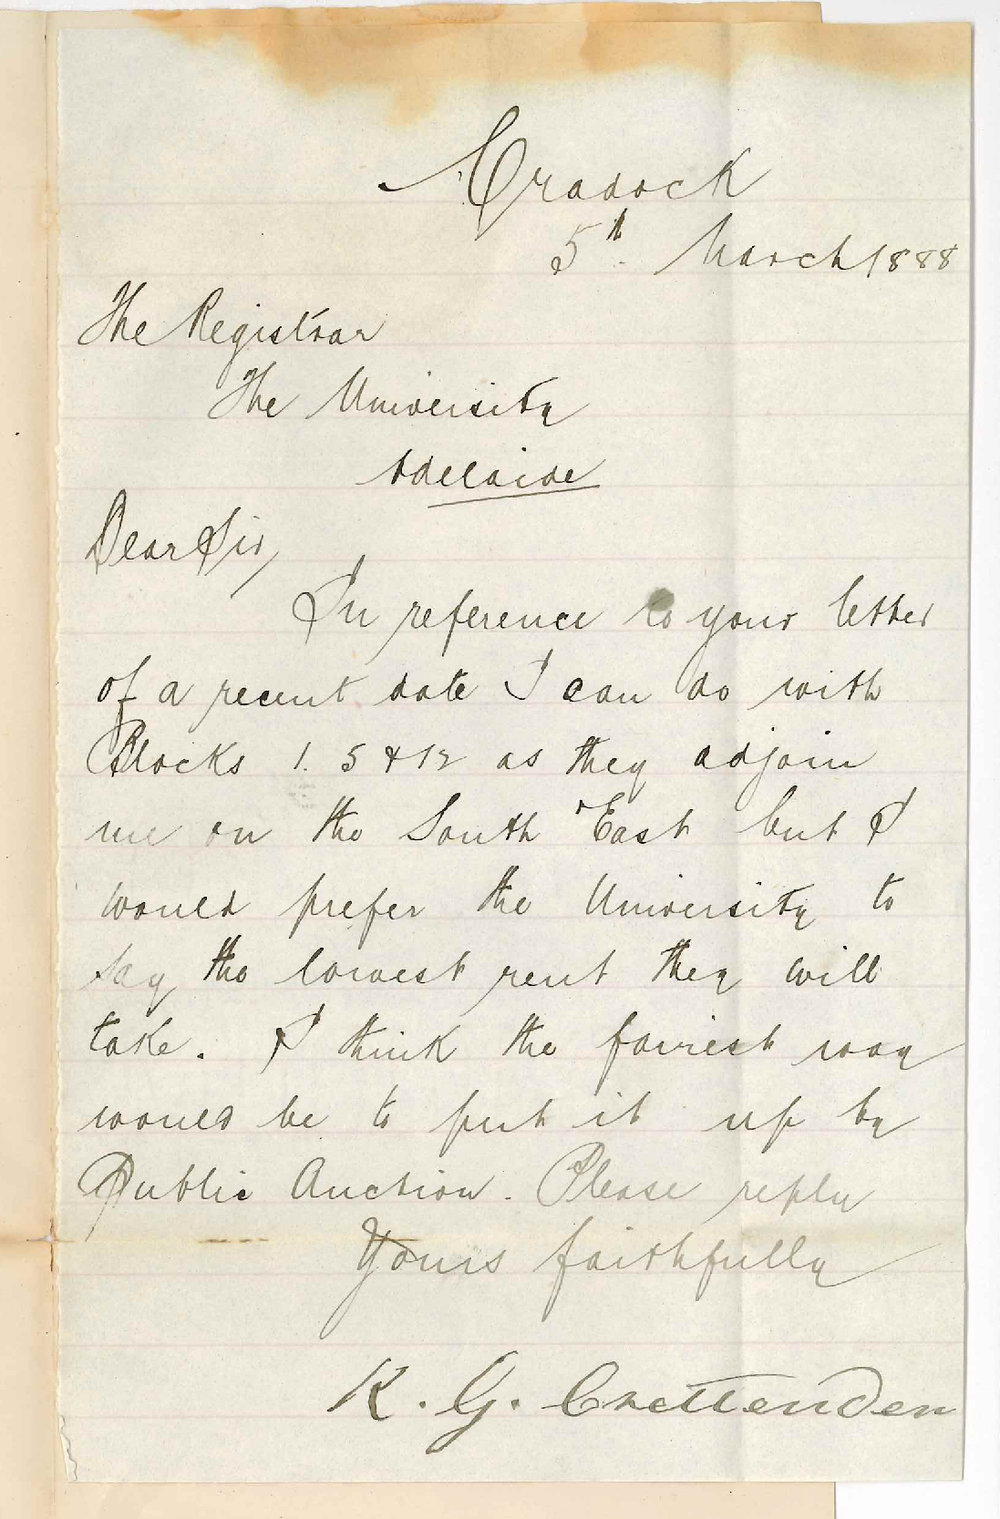 Cradock
5th. March 1888
The Registrar
The University
Adelaide
Dear Sir,
In reference to your letter
of a recent date I can do with
Blocks 1. 5 & 12 as they adjoin
me on the South East but I
would prefer the University to
say the lowest rent they will
take. I think the fairest way
would be to put it up by
Public Auction. Please reply
Yours faithfully
K. G. Crettenden